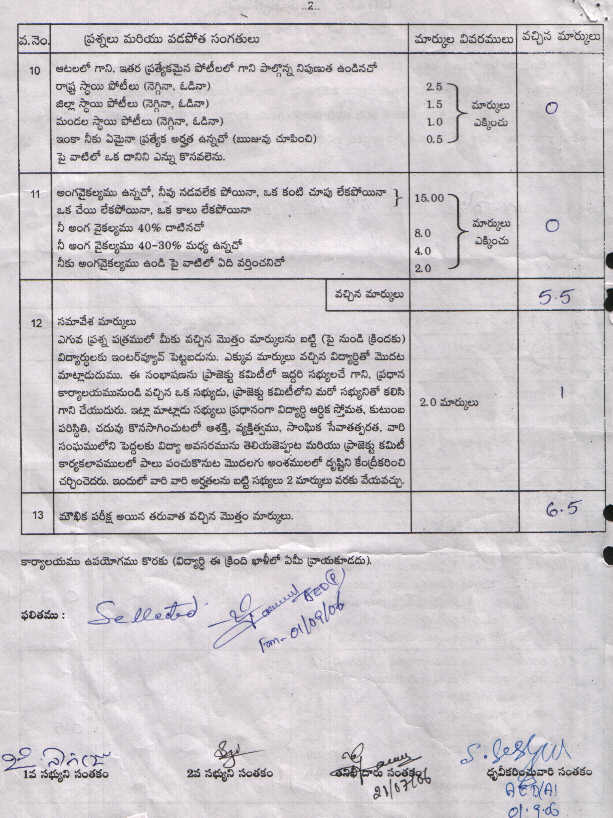 ..2..
వ.నెం. ప్రశ్నలు మరియు వడపోత సంగతులు మార్కుల వివరములు వచ్చిన మార్కులు
10 ఆటలలో గాని, ఇతర ప్రత్యేకమైన పోటీలలో గాని పాల్గొన్న నిపుణత ఉండినచో
రాష్ట్ర స్థాయి పోటీలు (నెగ్గినా, ఓడినా) 2.5
జిల్లా స్థాయి పోటీలు (నెగ్గినా, ఓడినా) 1.5 మార్కులు 0
మండల స్థాయి పోటీలు (నెగ్గినా, ఓడినా) 1.0 ఎక్కించు
ఇంకా నీకు ఏమైనా ప్రత్యేక అర్హత ఉన్నచో (ఋజువు చూపించి) 0.5
పై వాటిలో ఒక దానిని ఎన్ను కొనవలెను.
11 అంగవైకల్యము ఉన్నచో, నీవు నడవలేక పోయినా, ఒక కంటి చూపు లేకపోయినా 15.00
ఒక చేయి లేకపోయినా, ఒక కాలు లేకపోయినా
నీ అంగ వైకల్యము 40% దాటినచో 8.0 మార్కులు 0
నీ అంగ వైకల్యము 40-30% మధ్య ఉన్నచో 4.0 ఎక్కించు
నీకు అంగవైకల్యము ఉండి పై వాటిలో ఏది వర్తించనిచో 2.0
వచ్చిన మార్కులు 5.5
12 సమావేశ మార్కులు
ఎగువ ప్రశ్న పత్రములో మీకు వచ్చిన మొత్తం మార్కులను బట్టి (పై నుండి క్రిందకు)
విద్యార్థులకు ఇంటర్వ్యూన్ పెట్టబడును. ఎక్కువ మార్కులు వచ్చిన విద్యార్థితో మొదట
మాట్లాడుదుము. ఈ సంభాషణను ప్రాజెక్టు కమిటీలో ఇద్దరి సభ్యులచే గాని, ప్రధాన
కార్యాలయమునుండి వచ్చిన ఒక సభ్యుడు, ప్రాజెక్టు కమిటీలోని మరో సభ్యునితో కలిసి
గాని చేయుదురు. ఇట్లా మాట్లాడు సభ్యులు ప్రధానంగా విద్యార్థి ఆర్థిక స్తోమత, కుటుంబ 2.0 మార్కులు 1
పరిస్థితి, చదువు కొనసాగించుటలో ఆశక్తి, వ్యక్తిత్వము, సాంఘిక సేవాతత్పరత, వారి
సంఘములోని పెద్దలకు విద్యా అవసరమును తెలియజెప్పుట మరియు ప్రాజెక్టు కమిటీ
కార్యకలాపములలో పాలు పంచుకొనుట మొదలగు అంశములలో దృష్టిని కేంద్రీకరించి
చర్చించెదరు. ఇందులో వారి వారి అర్హతలను బట్టి సభ్యులు 2 మార్కులు వరకు వేయవచ్చు.
13 మౌఖిక పరీక్ష అయిన తరువాత వచ్చిన మొత్తం మార్కులు. 6.5
కార్యాలయము ఉపయోగము కొరకు (విద్యార్థి ఈ క్రింది ఖాళీలో ఏమీ వ్రాయకూడదు).
ఫలితము : Sellected
01/09/06
1వ సభ్యుని సంతకం 2వ సభ్యుని సంతకం సంతకం ధృవీకరించువారి సంతకం
21/07/06
01.9.06